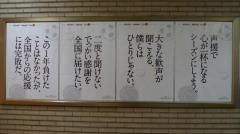 声援で
心が一杯になる
シーズンにしよう。
大きな歓声が
聞こえる。
僕らは
ひとりじゃない。
二度と聞けない
でっかい感謝を
全国に届けたい。
この1年負けた
ことはなかったが、
全国からの応援
には完敗だ。